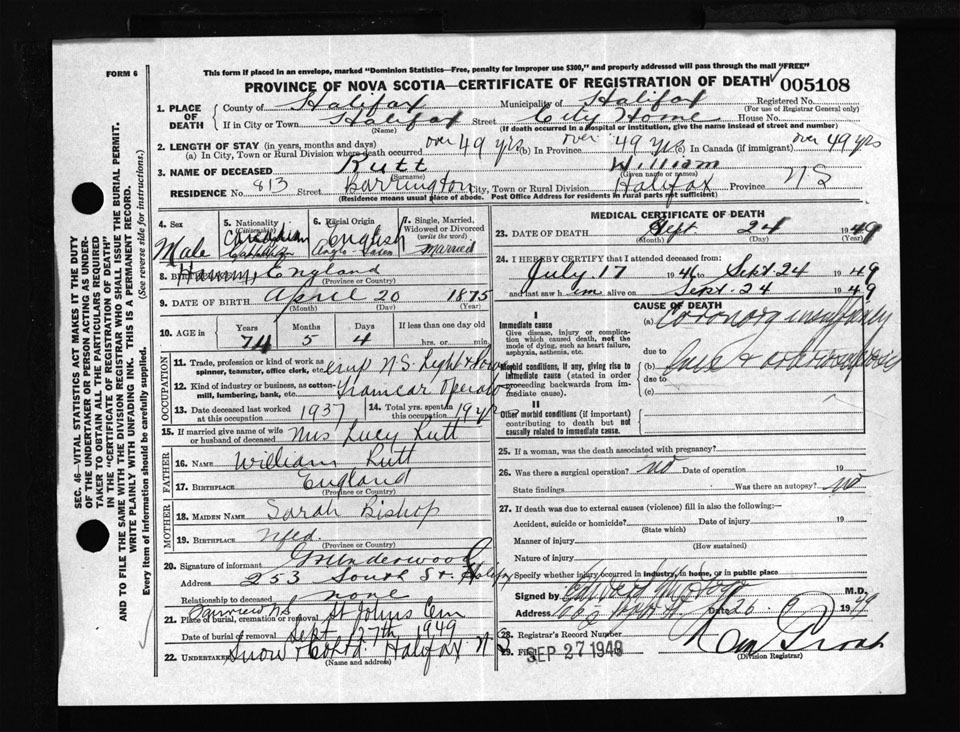 FORM 6
This form if placed in an envelope, marked "Dominion Statistics—Free, penalty for improper use $300," and properly addressed will pass through the mail "FREE"
PROVINCE OF NOVA SCOTIA—CERTIFICATE OF REGISTRATION OF DEATH 005108
SEC. 46—VITAL STATISTICS ACT MAKES IT THE DUTY
OF THE UNDERTAKER OR PERSON ACTING AS UNDER-
TAKER TO OBTAIN ALL THE PARTICULARS REQUIRED
IN THE "CERTIFICATE OF REGISTRATION OF DEATH"
AND TO FILE THE SAME WITH THE DIVISION REGISTRAR WHO SHALL ISSUE THE BURIAL PERMIT.
WRITE PLAINLY WITH UNFADING INK. THIS IS A PERMANENT RECORD.
Every item of information should be carefully supplied. (See reverse side for instructions.)
1. PLACE OF DEATH County of Halifax Municipality of Halifax Registered No.
(For use of Registrar General only)
If in City or Town Halifax Street City Home House No.
(Name) (If death occurred in a hospital or institution, give the name instead of street and number)
2. LENGTH OF STAY (in years, months and days)
(a) In City, Town or Rural Division where death occurred over 49 yrs (b) In Province over 49 yrs (c) In Canada (if immigrant) over 49 yrs
3. NAME OF DECEASED Rutt William
(Surname) (Given name or names)
RESIDENCE No. 813 Street Barrington City, Town or Rural Division Halifax Province NS
(Residence means usual place of abode. Post Office Address for residents in rural parts not sufficient)
4. Sex Male
5. Nationality (Citizenship) Canadian
6. Racial Origin English
Anglo Saxon
7. Single, Married, Widowed or Divorced (write the word) Married
8. Birthplace England
(Province or Country)
9. DATE OF BIRTH April 20 1875
(Month) (Day) (Year)
10. AGE in Years 74 Months 5 Days 4 If less than one day old
hrs. or min.
OCCUPATION
11. Trade, profession or kind of work as spinner, teamster, office clerk, etc. emp N.S. Light & Power
12. Kind of industry or business, as cotton-mill, lumbering, bank, etc. Tramcar Operator
13. Date deceased last worked at this occupation 1937 14. Total yrs. spent in this occupation 19 yrs
15. If married give name of wife or husband of deceased Mrs Lucy Rutt
FATHER
16. NAME William Rutt
17. BIRTHPLACE England
(Province or Country)
MOTHER
18. MAIDEN NAME Sarah Bishop
19. BIRTHPLACE Nfld.
(Province or Country)
20. Signature of informant G Underwood
Address 253 South St. Halifax
Relationship to deceased none
21. Place of burial, cremation or removal Fairview NS St Johns Cem
Date of burial or removal Sept 27th 1949
22. Undertaker Snow & Co Ltd. Halifax N
(Name and address)
MEDICAL CERTIFICATE OF DEATH
23. DATE OF DEATH Sept 24 1949
(Month) (Day) (Year)
24. I HEREBY CERTIFY that I attended deceased from:
July 17 1946 to Sept. 24 1949
and last saw him alive on Sept. 24 1949
CAUSE OF DEATH
I
Immediate cause (a) Coronary insufficiency
Give disease, injury or complication which caused death, not the mode of dying, such as heart failure, asphyxia, asthenia, etc.
due to
Morbid conditions, if any, giving rise to immediate cause (stated in order proceeding backwards from immediate cause). (b)
due to
(c)
II
Other morbid conditions (if important) contributing to death but not causally related to immediate cause.
25. If a woman, was the death associated with pregnancy?
26. Was there a surgical operation? no Date of operation 19
State findings Was there an autopsy? no
27. If death was due to external causes (violence) fill in also the following:—
Accident, suicide or homicide? Date of injury 19
(State which)
Manner of injury
(How sustained)
Nature of injury
Specify whether injury occurred in industry, in home, or in public place
Signed by M.D.
Address Date 26 1949
28. Registrar's Record Number
29. Filed SEP 27 1949
(Division Registrar)